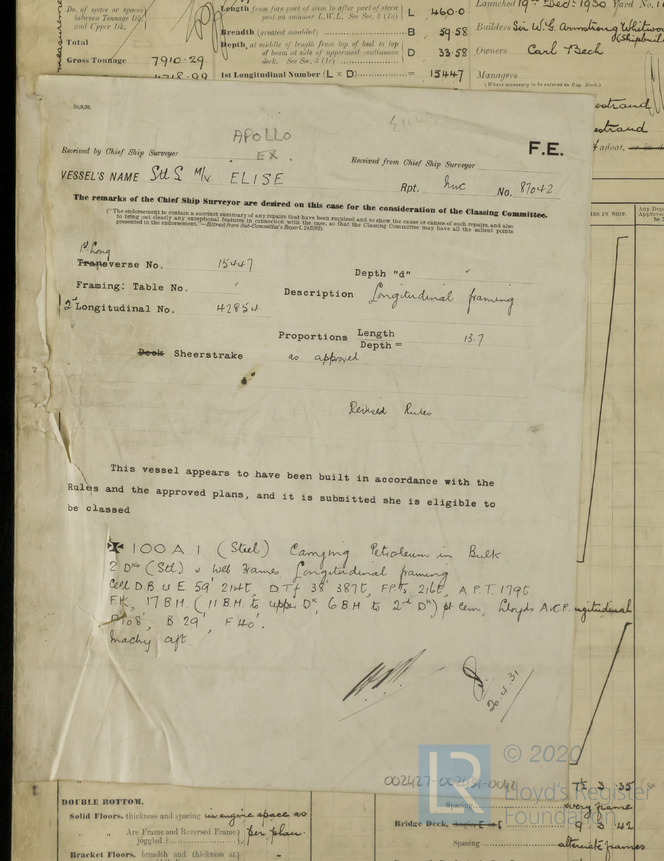 Dk. of space or spaces
between Tonnage Dk.
and Upper Dk.
Total
Gross Tonnage 7910.29
4718.99
Length from fore part of stem to after part of stern
post on summer L.W.L. See Sec. 3 (1a) L 460.0
Breadth (greatest moulded) B 59.58
Depth, at middle of length from top of keel to top
of beam at side of uppermost continuous
deck. See Sec. 3 (1c) D 33.58
1st Longitudinal Number (L × D) = 15447
Launched 19th Dec. 1930 Yard No.
Builders Sir W.G. Armstrong Whitwor
(Shipbuil
Owners Carl Bech
Managers
(Where necessary to be entered in Reg. Book.)
estrand
estrand
afloat,
5c,9,30.
APOLLO
EX
Received by Chief Ship Surveyor
Received from Chief Ship Surveyor
F.E.
VESSEL'S NAME Stl S M/V ELISE
Rpt. Nwc No. 87042
The remarks of the Chief Ship Surveyor are desired on this case for the consideration of the Classing Committee.
("The endorsement to contain a succinct summary of any repairs that have been required and to show the cause or causes of such repairs, and also
to bring out clearly any exceptional features in connection with the case, so that the Classing Committee may have all the salient points
presented in the endorsement."—Extract from Sub-Committee's Report,
1st Long
Transverse No. 15447
Depth "d" "
Framing: Table No. "
Description Longitudinal framing
2nd Longitudinal No. 42854
Proportions Length
Depth = 13.7
Deck Sheerstrake as approved
Revised Rules
This vessel appears to have been built in accordance with the
Rules and the approved plans, and it is submitted she is eligible to
be classed
✠ 100 A 1 (Steel) Carrying Petroleum in Bulk
2 Dks (Stl) & Web Frames Longitudinal framing
Cell D.B. U E 59' 214t, D.T.f 38' 387t, F.P.T. 216t, A.P.T. 179t
F.K, 17 B.H. (11 B.H. to upper Dk, 6 B.H. to 2nd Dk) pt Cem, Lloyds A.&C.P. ngitudinal
P 108', B 29', F 40'.
Machy aft
20.4.31
002427-002434-0042
© 2020
LR
Lloyd's Register
Foundation
DOUBLE BOTTOM.
Solid Floors, thickness and spacing in engine space as
" Are Frame and Reversed Frame
joggled ? per plan.
Bracket Floors, breadth and thickness at
Spacing every frame
Bridge Deck,
Spacing alternate frames